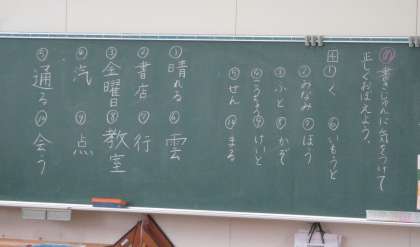 め 書きじゅんに気をつけて
正しくおぼえよう。
①く ⑥いもうと
②みなみ ⑦ほう
③ふと ⑧かぞ
⑨けいと
⑤せん ⑩まる
①晴れる ⑥雲
②書店 ⑦行
③金曜日 ⑧教室
④汽 ⑨点
⑤通る ⑩会う